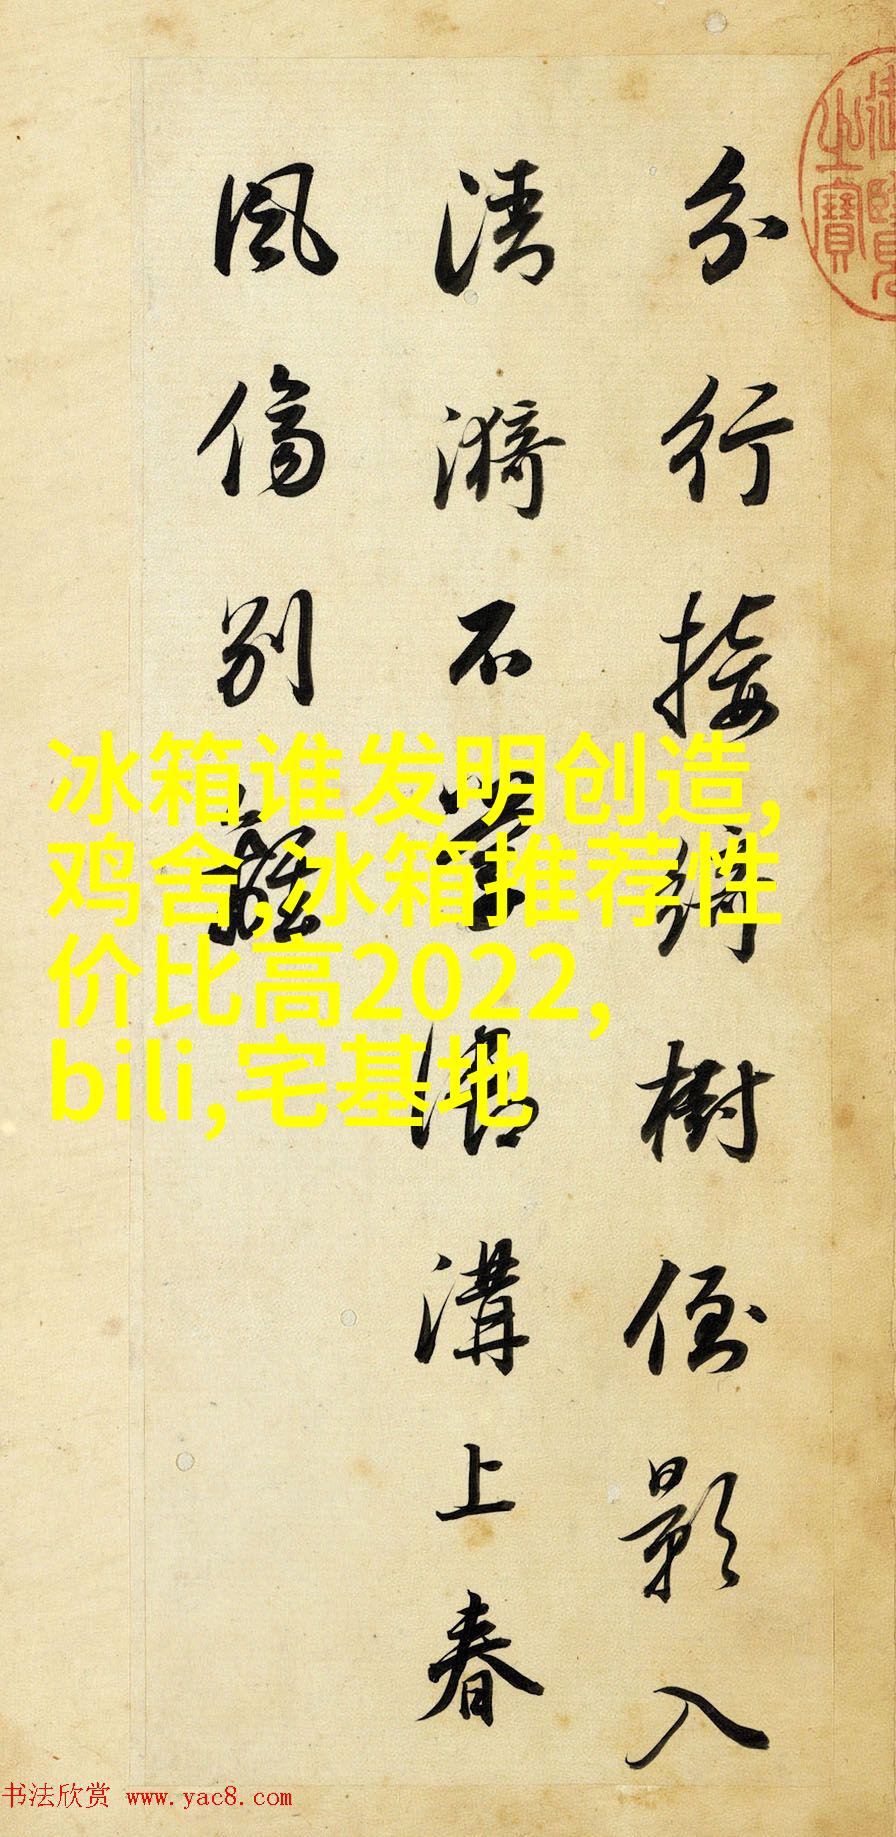 分行接綺樹倒影入
清漪不學御溝上春
風傷別離
冰箱谁发明创造,
鸡舍,冰箱推荐性
价比高2022,
bili,宅基地
御覽之寶
书法欣赏 www.yac8.com